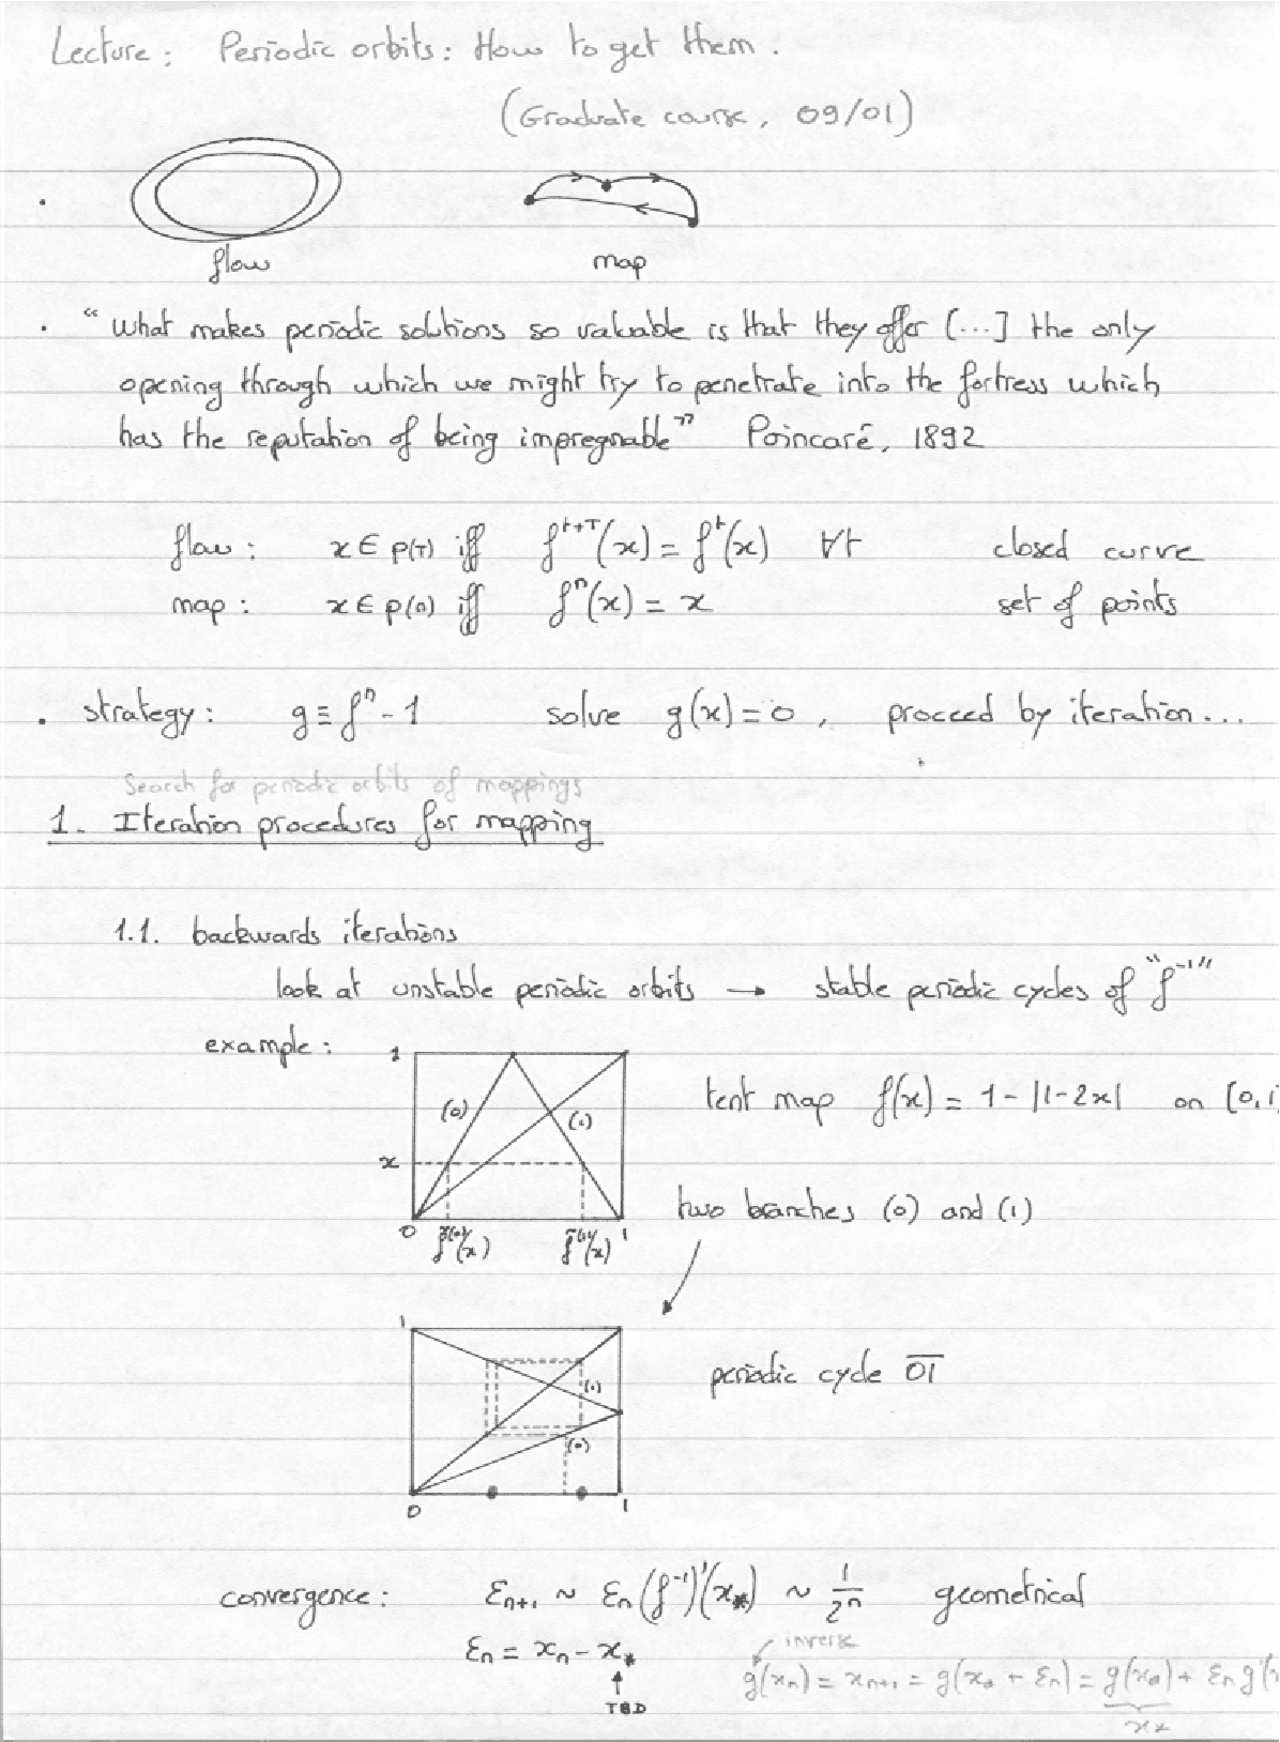 Lecture: Periodic orbits: How to get them.
(Graduate course, 09/01)
flow
map
. "What makes periodic solutions so valuable is that they offer [...] the only
opening through which we might try to penetrate into the fortress which
has the reputation of being impregnable" Poincaré, 1892
flow: x ∈ p(T) iff f^{t+T}(x) = f^t(x) ∀t closed curve
map: x ∈ p(n) iff f^n(x) = x set of points
. strategy: g ≡ f^n - 1 solve g(x) = 0, proceed by iteration...
Search for periodic orbits of mappings
1. Iteration procedures for mapping
1.1. backwards iterations
look at unstable periodic orbits → stable periodic cycles of "f^{-1}"
example:
1
(0) (1)
tent map f(x) = 1 - |1-2x| on [0,1]
x
two branches (0) and (1)
0 f^{-1(0)}(x) f^{-1(1)}(x) 1
1
periodic cycle \overline{01}
(1)
(0)
0 1
convergence: ε_{n+1} ~ ε_n (f^{-1})'(x_*) ~ 1/2^n geometrical
ε_n = x_n - x_*
inverse
g(x_n) = x_{n+1} = g(x_* + ε_n) = g(x_*) + ε_n g'(x
TBD
x_*